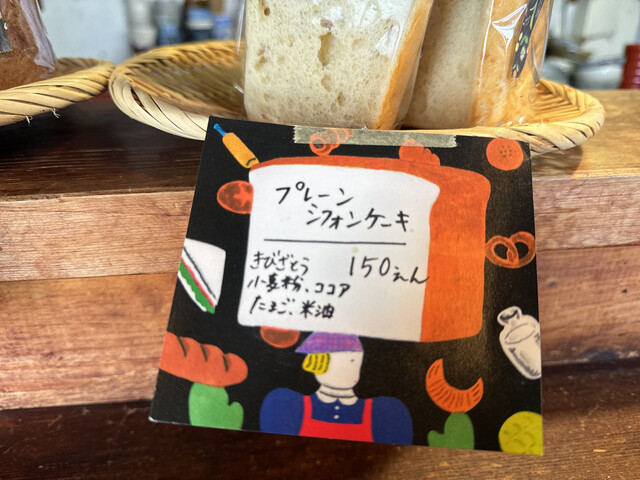 プレーン
シフォンケーキ
きびざとう 150えん
小麦粉、ココア
たまご、米油